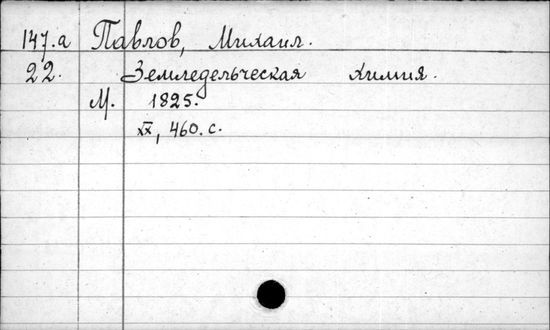 147.a Павлов, Михаил.
22. Земледельческая химия.
М. 1825.
XX, 460. с.